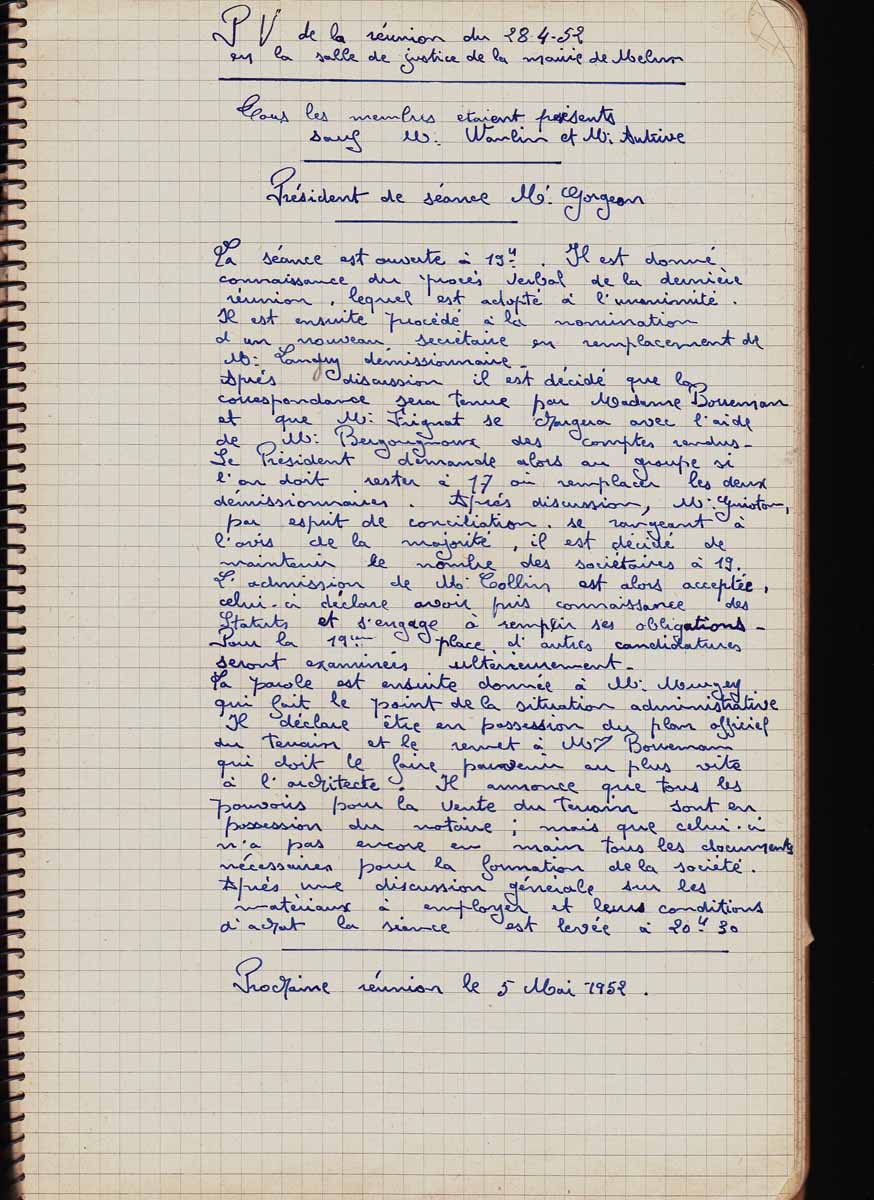 P V de la réunion du 28-4-52
en la salle de justice de la mairie de Melun
Tous les membres etaient présents
sauf Mr. Wanlin et Mr. Autrive
Président de séance Mr. Gorgeon
La séance est ouverte à 19H. Il est donné
connaissance du procès verbal de la dernière
réunion, lequel est adopté à l'unanimité.
Il est ensuite procédé à la nomination
d'un nouveau secrétaire en remplacement de
Mr. Tanguy démissionnaire.
Après discussion il est décidé que la
correspondance sera tenue par Madame Borreman
et que Mr. Frignat se chargera avec l'aide
de Mr. Bergougnoux des comptes rendus.
Le Président demande alors au groupe si
l'on doit rester à 17 où remplacer les deux
démissionnaires. Après discussion, Mr. Guiotan,
par esprit de conciliation. se rangeant à
l'avis de la majorité, il est décidé de
maintenir le nombre des sociétaires à 19.
L'admission de Mr Collin est alors acceptée,
celui-ci déclare avoir pris connaissance des
Statuts et s'engage à remplir ses obligations_
Pour la 19ème place, d'autres candidatures
seront examinées ultérieurement_
La parole est ensuite donnée à Mr.
qui fait le point de la situation administrative
Il déclare être en possession du plan officiel
du terrain et le remet à Borreman
qui doit le faire parvenir au plus vite
à l'architecte. Il annonce que tous les
pouvoirs pour la vente du terrain sont en
possession du notaire ; mais que celui-ci
n'a pas encore en main tous les documents
nécessaires pour la formation de la société.
Après une discussion générale sur les
matériaux à employer et leurs conditions
d'achat la séance est levée à 20H 30
Prochaine réunion le 5 Mai 1952.